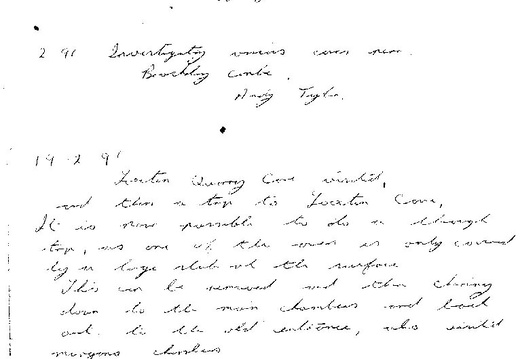 2 91 Investigating various caves near
Burrington Combe.
Andy Taylor.
19-2 91
Loxton Quarry Cave visited,
and then a trip to Loxton Cave,
It is now possible to do a through
trip, as one of the is only covered
by a large slab at the surface
This can be removed and then
down to the main chambers and back
out to the old entrance, also visited
chambers